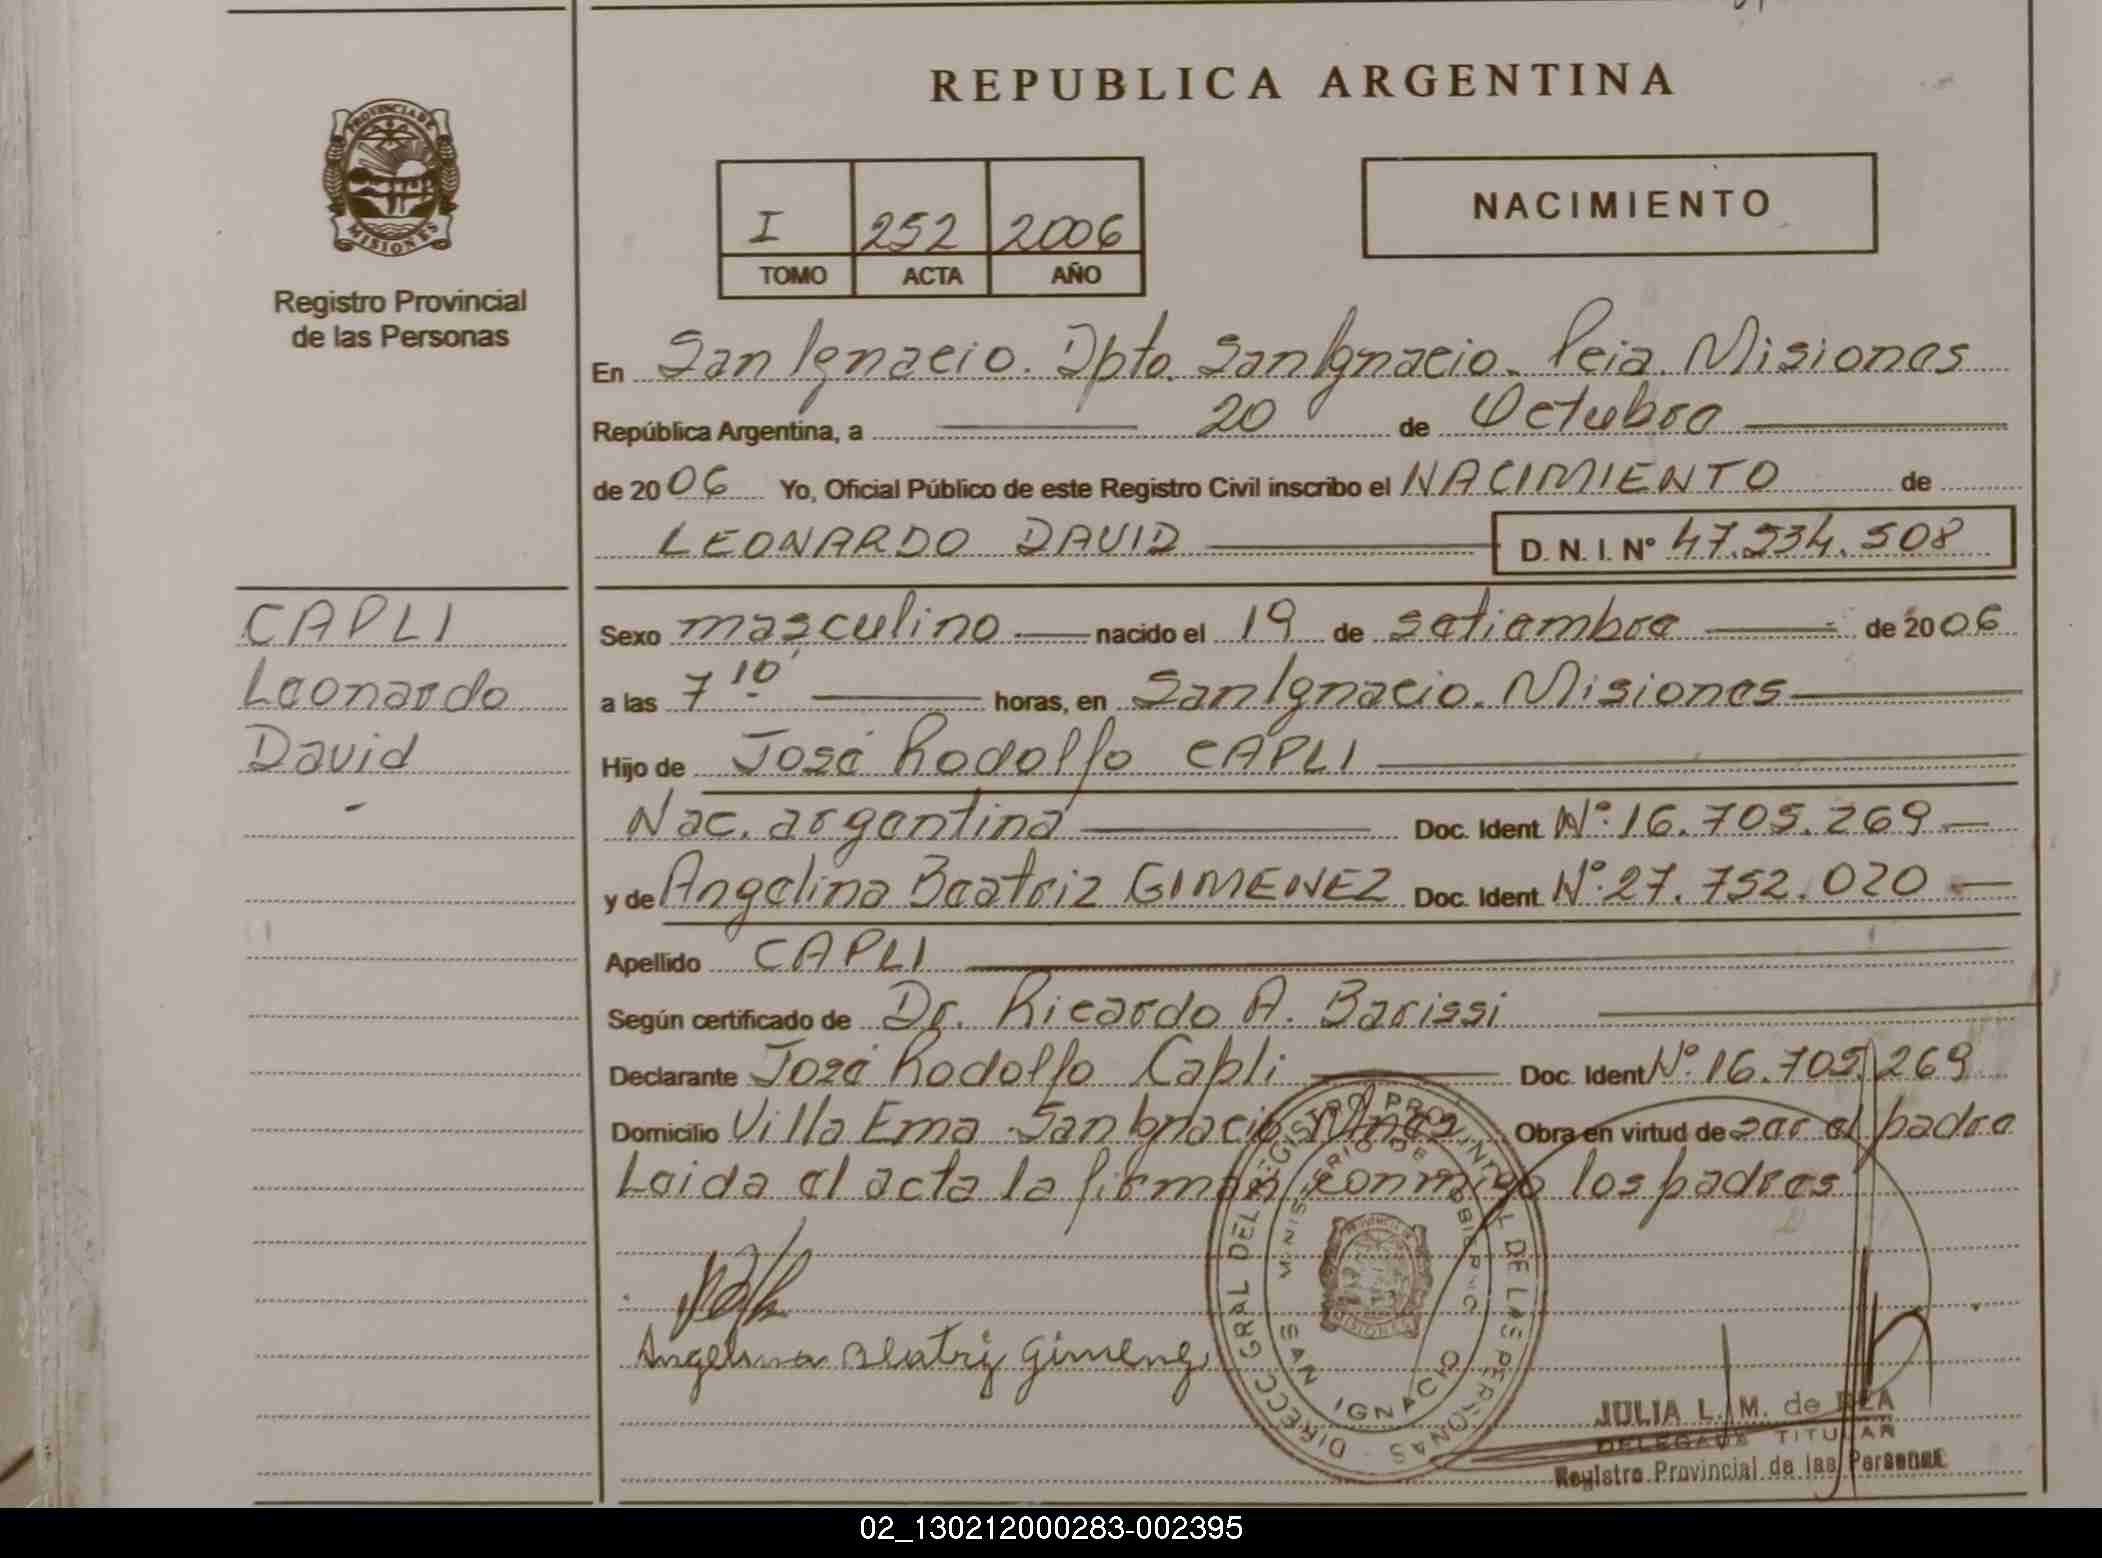 REPUBLICA ARGENTINA
PROVINCIA DE
MISIONES
Registro Provincial
de las Personas
I 252 2006
TOMO ACTA AÑO
NACIMIENTO
En San Ignacio. Dpto. San Ignacio. Pcia. Misiones
República Argentina, a 20 de Octubre
de 2006 Yo, Oficial Público de este Registro Civil inscribo el NACIMIENTO de
LEONARDO DAVID D. N. I. N° 47.534.508
CAPLI
Leonardo
David
Sexo masculino nacido el 19 de setiembre de 2006
a las 7 10 horas, en San Ignacio. Misiones
Hijo de José Rodolfo CAPLI
Nac. argentina Doc. Ident. N° 16.705.269
y de Angelina Beatriz GIMENEZ Doc. Ident. N° 27.752.020
Apellido CAPLI
Según certificado de Dr. Ricardo A. Barissi
Declarante José Rodolfo Capli Doc. Ident N° 16.705.269
Domicilio Villa Ema San Ignacio Mnes Obra en virtud de ser el padre
Leida el acta la firman conmigo los padres
Angelina Beatriz Gimenez
DIRECC. GRAL DEL REGISTRO PROVINCIAL DE LAS PERSONAS
MINISTERIO DE GOBIERNO
SAN IGNACIO
PROVINCIA
MISIONES
JULIA L. M. de REA
DELEGADA TITULAR
Registro Provincial de las Personas
02_130212000283-002395